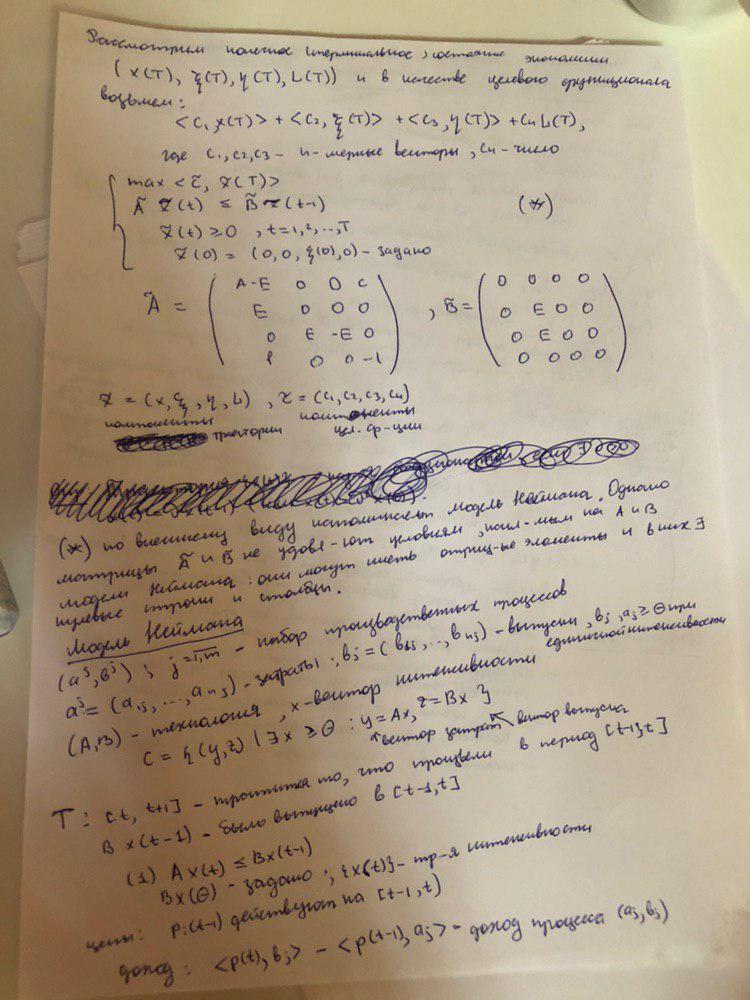 Рассмотрим конечное (терминальное) состояние экономики
(x(T), ξ(T), η(T), L(T)) и в качестве целевого функционала
возьмем:
<c₁,x(T)> + <c₂, ξ(T)> + <c₃, η(T)> + c₄ L(T),
где c₁, c₂, c₃ - n-мерные векторы, c₄ - число
max <c̃, z(T)>
Ã z(t) ≤ B̃ z(t-1) (*)
z(t) ≥ 0 , t=1,2,..,T
z(0) = (0, 0, ξ(0), 0) - задано
Ã = ( A-E 0 0 c , B̃ = ( 0 0 0 0
E 0 0 0 0 E 0 0
0 E -E 0 0 E 0 0
l 0 0 -1 ) 0 0 0 0 )
z = (x, ξ, η, L) , c̃ = (c₁, c₂, c₃, c₄)
компоненты компоненты
траектории цел. ф-ции
(*) по внешнему виду напоминает модель Неймана. Однако
матрицы Ã и B̃ не удовл-ют условиям, нал-мым на A и B
модели Неймана: они могут иметь отриц-ые элементы и в них ∃
нулевые строки и столбцы.
Модель Неймана
(aʲ, bʲ) ; j=1,m - набор производственных процессов
aʲ = (a₁ⱼ, ..., aₙⱼ) - затраты ; bⱼ = (b₁ⱼ, ..., bₙⱼ) - выпуски , bⱼ, aⱼ ≥ Θ при
единичной интенсивности
(A,B) - технология , x - вектор интенсивности
C = {(y,z) | ∃ x ≥ Θ : y = Ax, z = Bx }
вектор затрат вектор выпуска
T : [t, t+1] - тратится то, что произвели в период [t-1, t]
B x(t-1) - было выпущено в [t-1, t]
(1) A x(t) ≤ B x(t-1)
Bx(Θ) - задано ; {x(t)} - тр-я интенсивности
цены: pᵢ(t-1) действуют на [t-1, t)
доход : <p(t), bⱼ> - <p(t-1), aⱼ> - доход процесса (aⱼ, bⱼ)